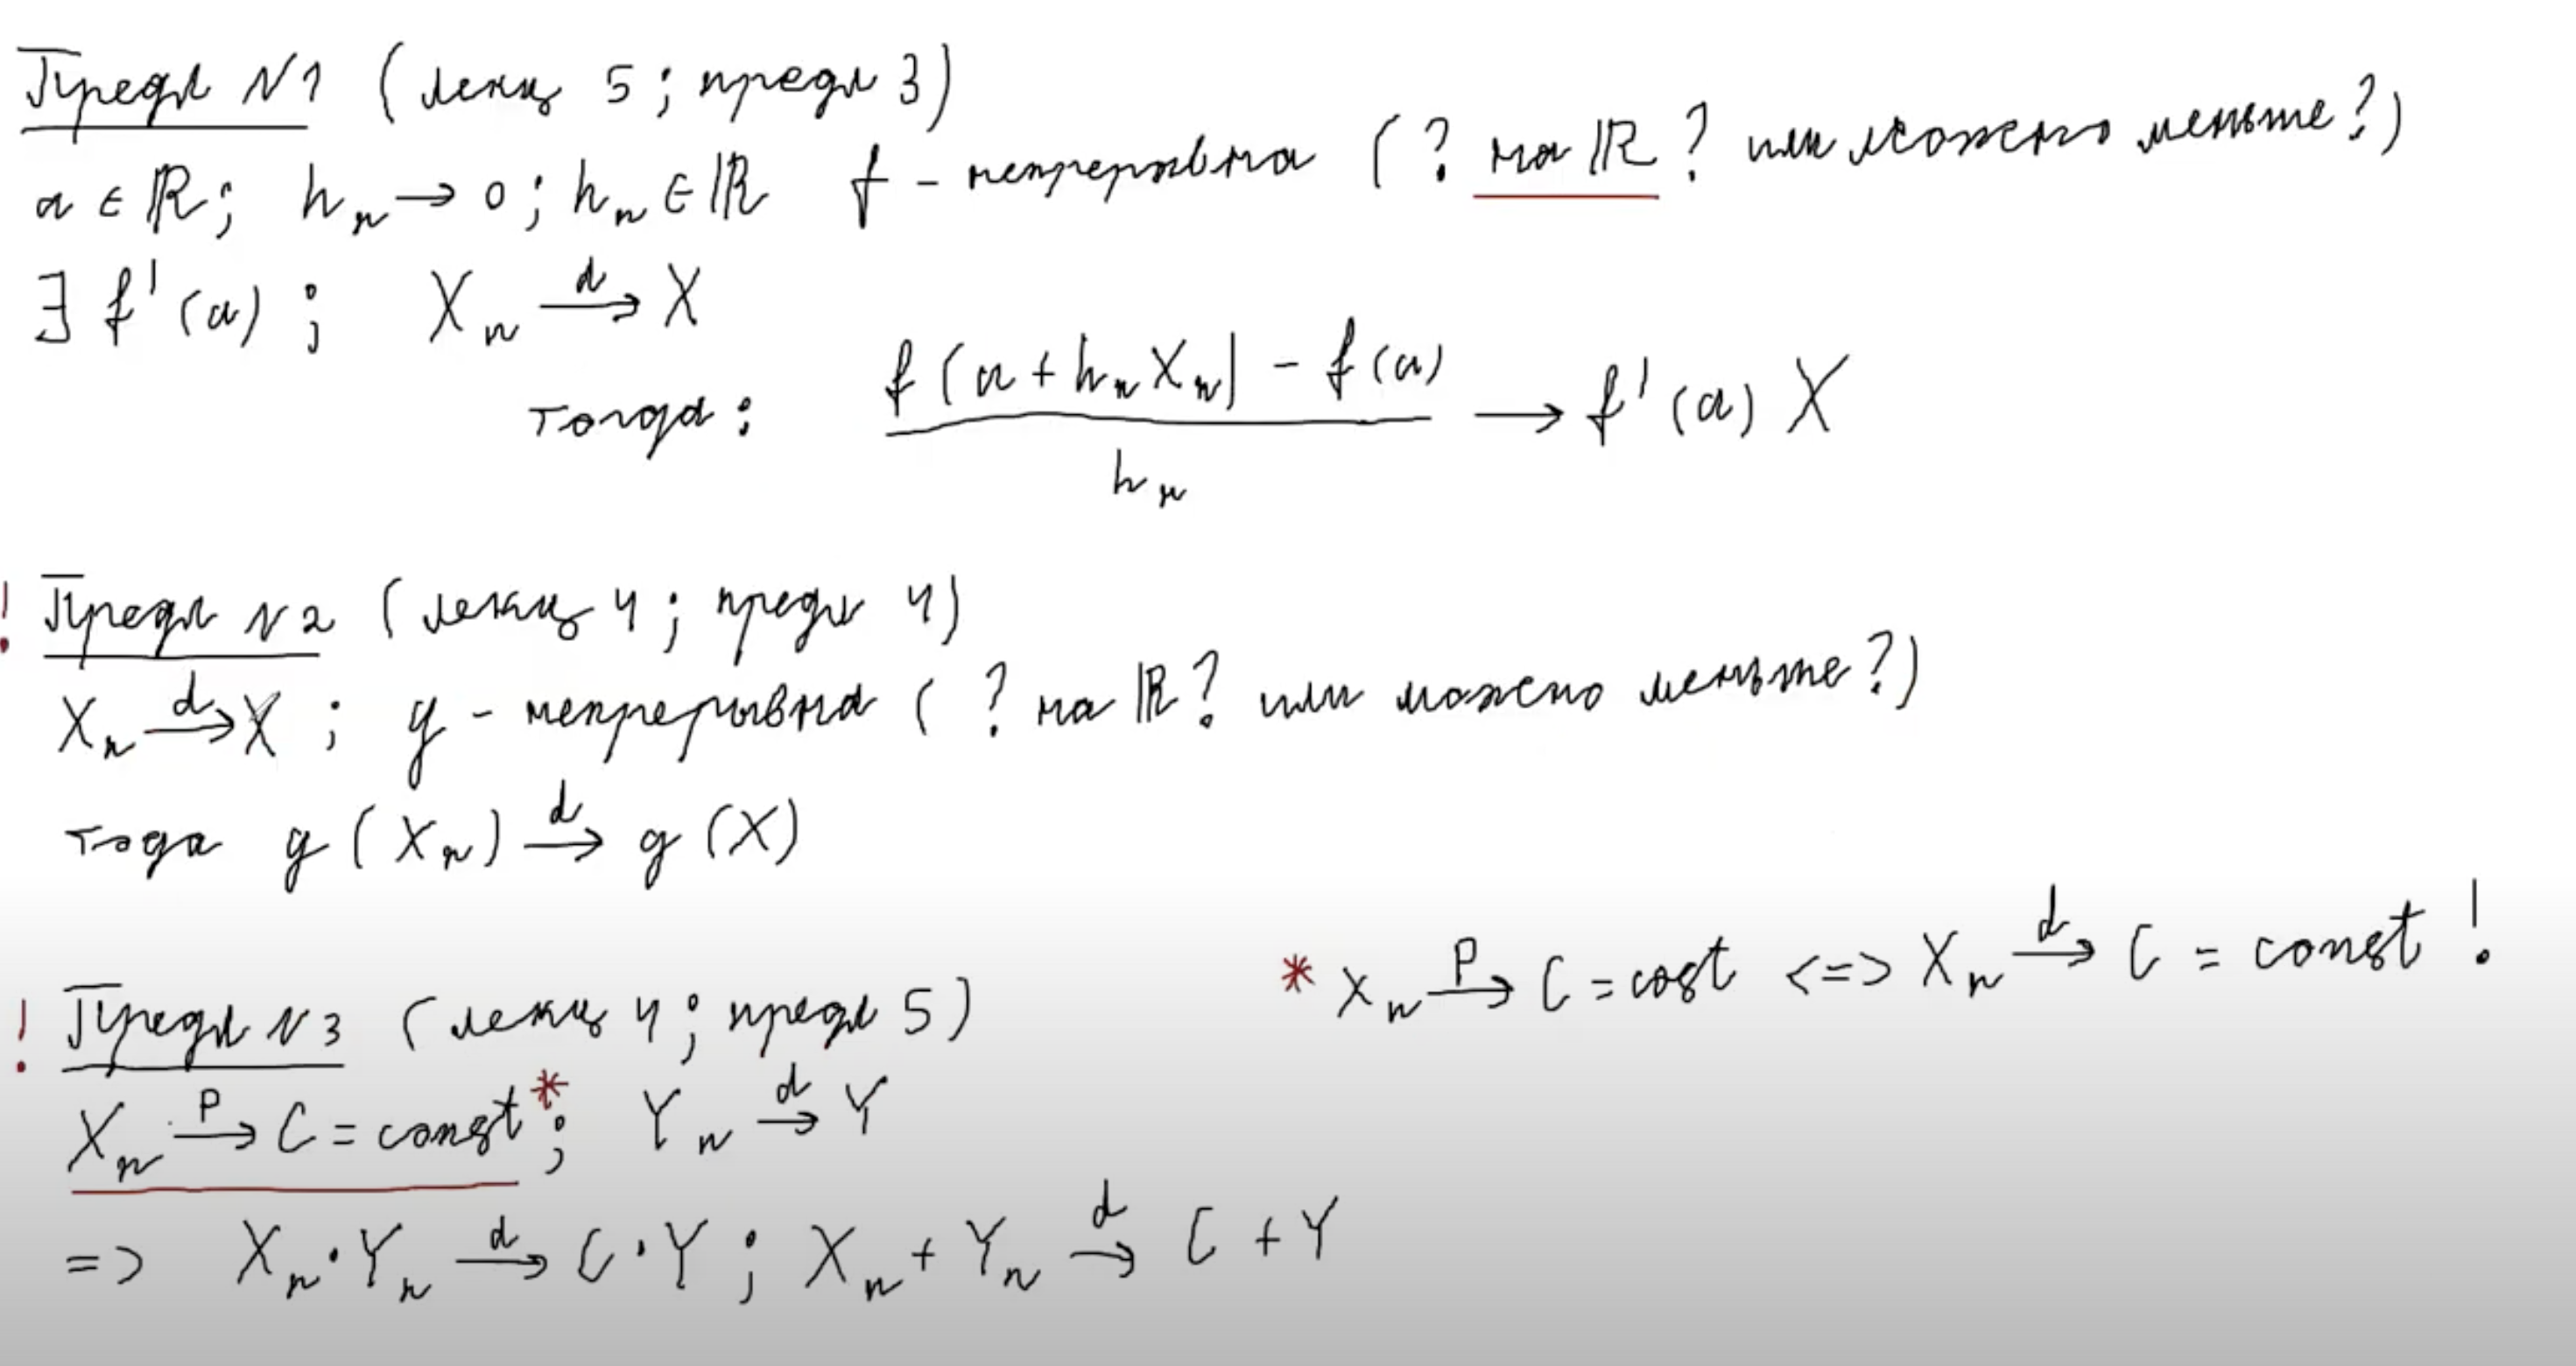 Предл N1 (лекц 5; предл 3)
a ∈ ℝ; hₙ → 0; hₙ ∈ ℝ f - непрерывна (? на ℝ? или можно меньше?)
∃ f'(a); Xₙ →ᵈ X
тогда: (f(a + hₙXₙ) - f(a)) / hₙ → f'(a) X
! Предл N2 (лекц 4; предл 4)
Xₙ →ᵈ X; g - непрерывна (? на ℝ? или можно меньше?)
тогда g(Xₙ) →ᵈ g(X)
* Xₙ →ᴾ C = cost <=> Xₙ →ᵈ C = const !
! Предл N3 (лекц 4; предл 5)
Xₙ →ᴾ C = const*; Yₙ →ᵈ Y
=> Xₙ · Yₙ →ᵈ C · Y; Xₙ + Yₙ →ᵈ C + Y